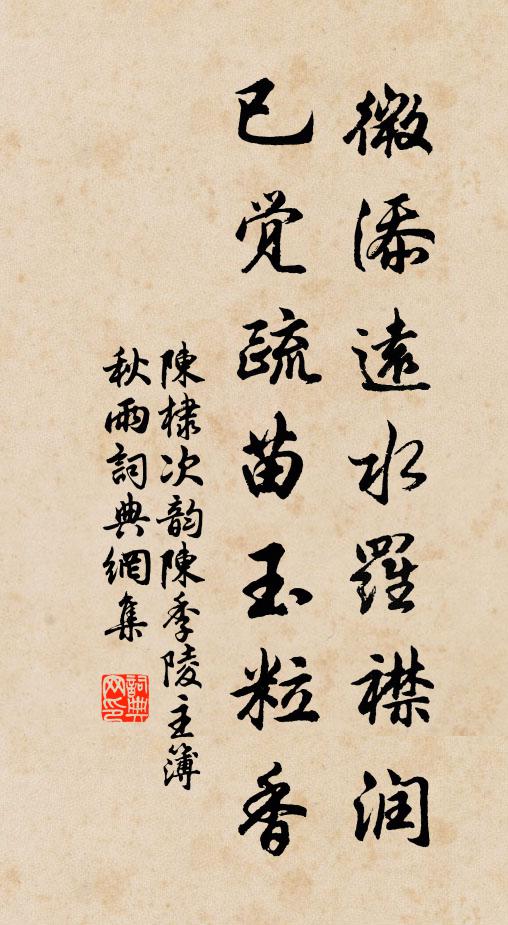 微添遠水羅襟润
已觉疏苗玉粒香
陳棣次韵陳季陵主簿
秋雨詞典網集
詞典网印